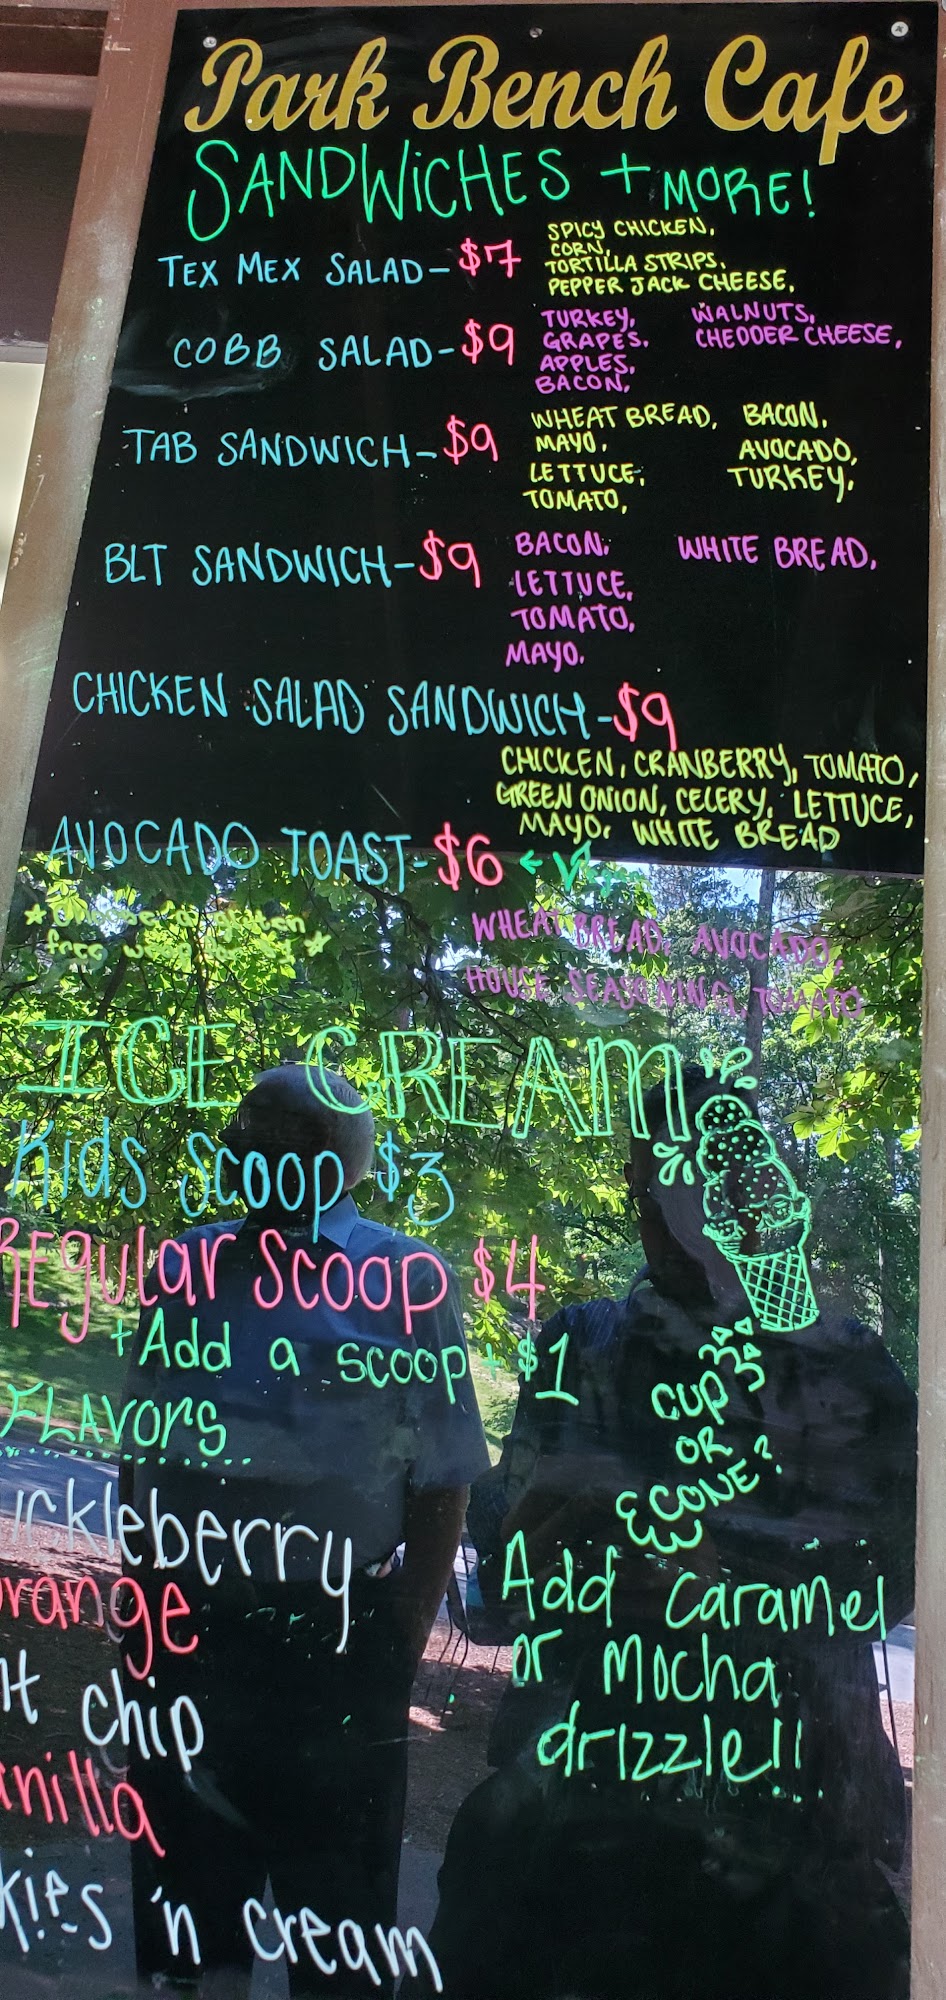 Park Bench Cafe
SANDWiCHES + MORE!
TEX MEX SALAD - $7
SPICY CHICKEN,
CORN,
TORTILLA STRIPS,
PEPPER JACK CHEESE,
COBB SALAD - $9
TURKEY, WALNUTS,
GRAPES, CHEDDER CHEESE,
APPLES,
BACON,
TAB SANDWICH - $9
WHEAT BREAD, BACON,
MAYO, AVOCADO,
LETTUCE, TURKEY,
TOMATO,
BLT SANDWICH - $9
BACON, WHITE BREAD,
LETTUCE,
TOMATO,
MAYO.
CHICKEN SALAD SANDWICH - $9
CHICKEN, CRANBERRY, TOMATO,
GREEN ONION, CELERY, LETTUCE,
MAYO, WHITE BREAD
AVOCADO TOAST - $6
WHEAT BREAD, AVOCADO,
HOUSE SEASONING, TOMATO
gluten
free
ICE CREAM
Kids Scoop $3
REgular Scoop $4
+ Add a scoop + $1
FLAVOrS
CUP
OR
CONE?
ckleberry
range
nt chip
anilla
kies 'n cream
Add caramel
or Mocha
drizzle!!